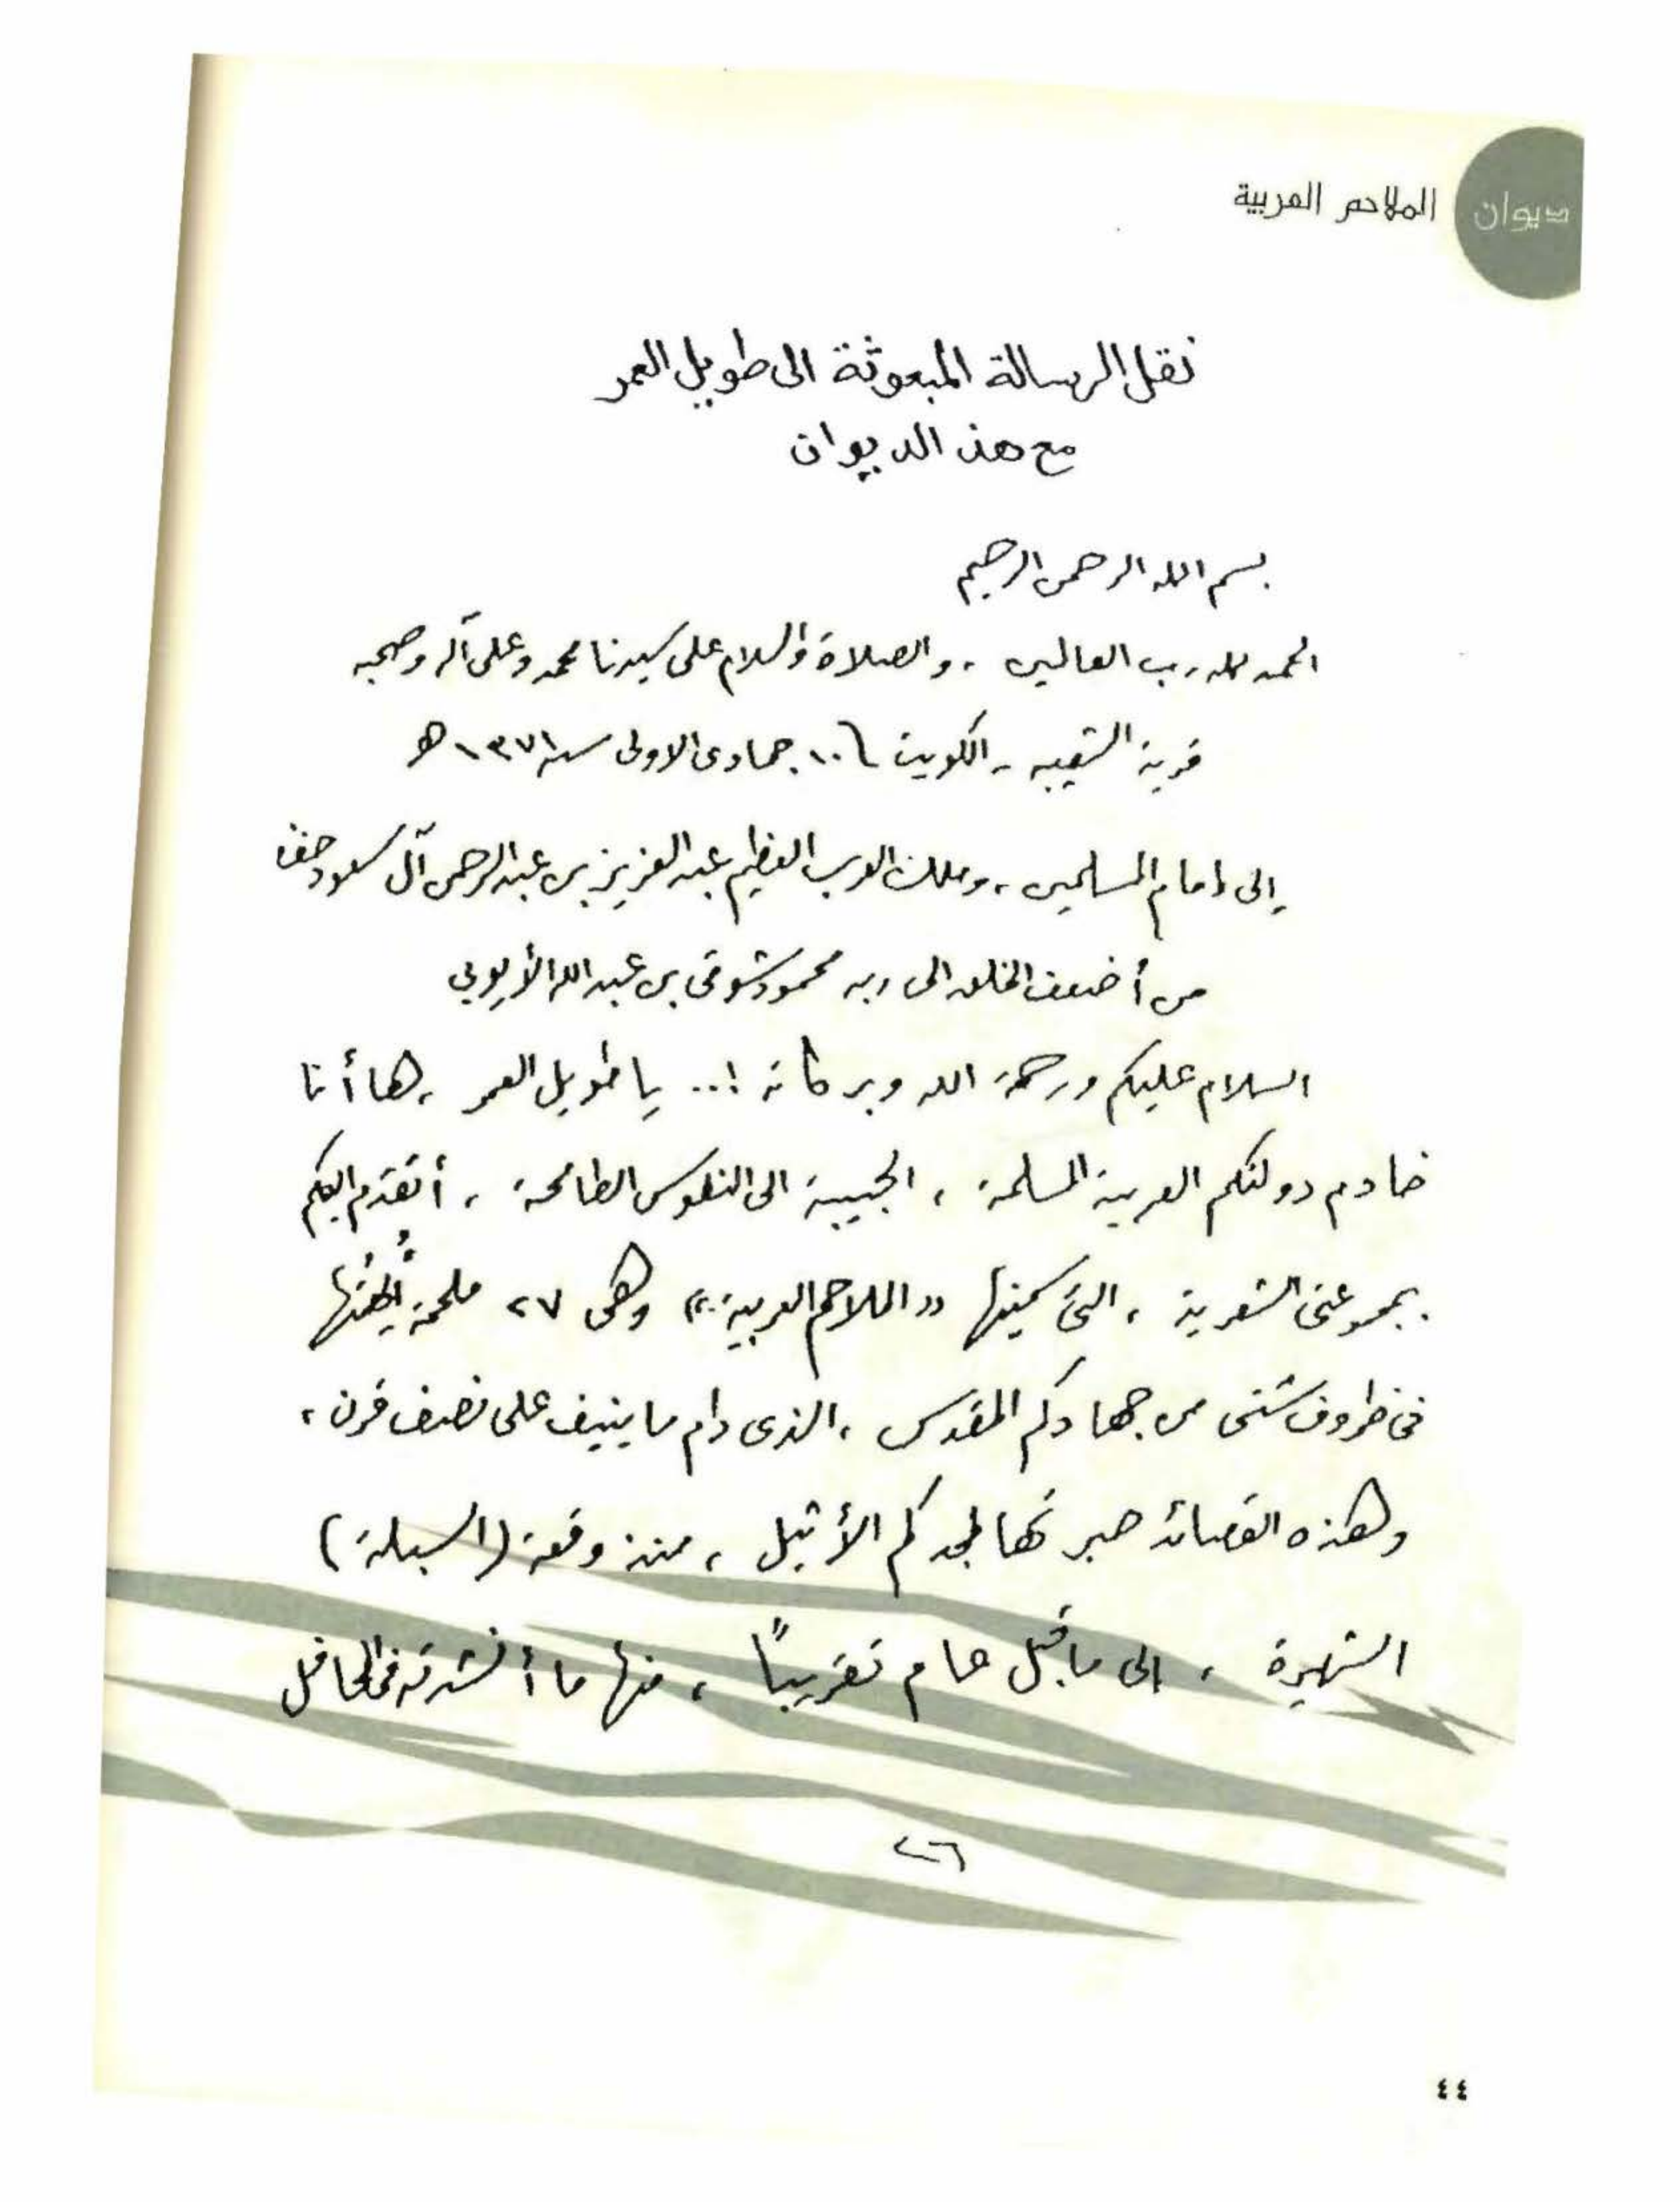 ديوان الملاحم العربية
نقل الرسالة المبعوثة الى طويل العمر
مع هذا الديوان
بسم الله الرحمن الرحيم
الحمد لله رب العالمين ، والصلاة والسلام على سيدنا محمد وعلى آله وصحبه
قرية الشعيبه - الكويت ١٠ جمادى الاولى سنة ١٣٧١ هـ
إلى إمام المسلمين ، وملك العرب العظيم عبد العزيز بن عبد الرحمن آل سعود
من أضعف الخلق الى ربه محمود شوقي بن عبد الله الأيوبي
السلام عليكم ورحمة الله وبركاته !.. يا طويل العمر ، ها أنا
خادم دولتكم العربية المسلمة ، الحبيبة الى النفوس الطامحة ، أتقدم اليكم
بمجموعتى الشعرية ، التى سميتها «الملاحم العربية» وهى ٢٧ ملحمة
فى ظروف شتى من جهادكم المقدس ، الذى دام ما ينيف على نصف قرن ،
وهذه القصائد حبرتها لمجدكم الأثيل ، منذ وقعة (السبلة)
الشهيرة ، الى ما قبل عام تقريباً ، منها ما أنشدته فى المحافل
٢٦
٤٤